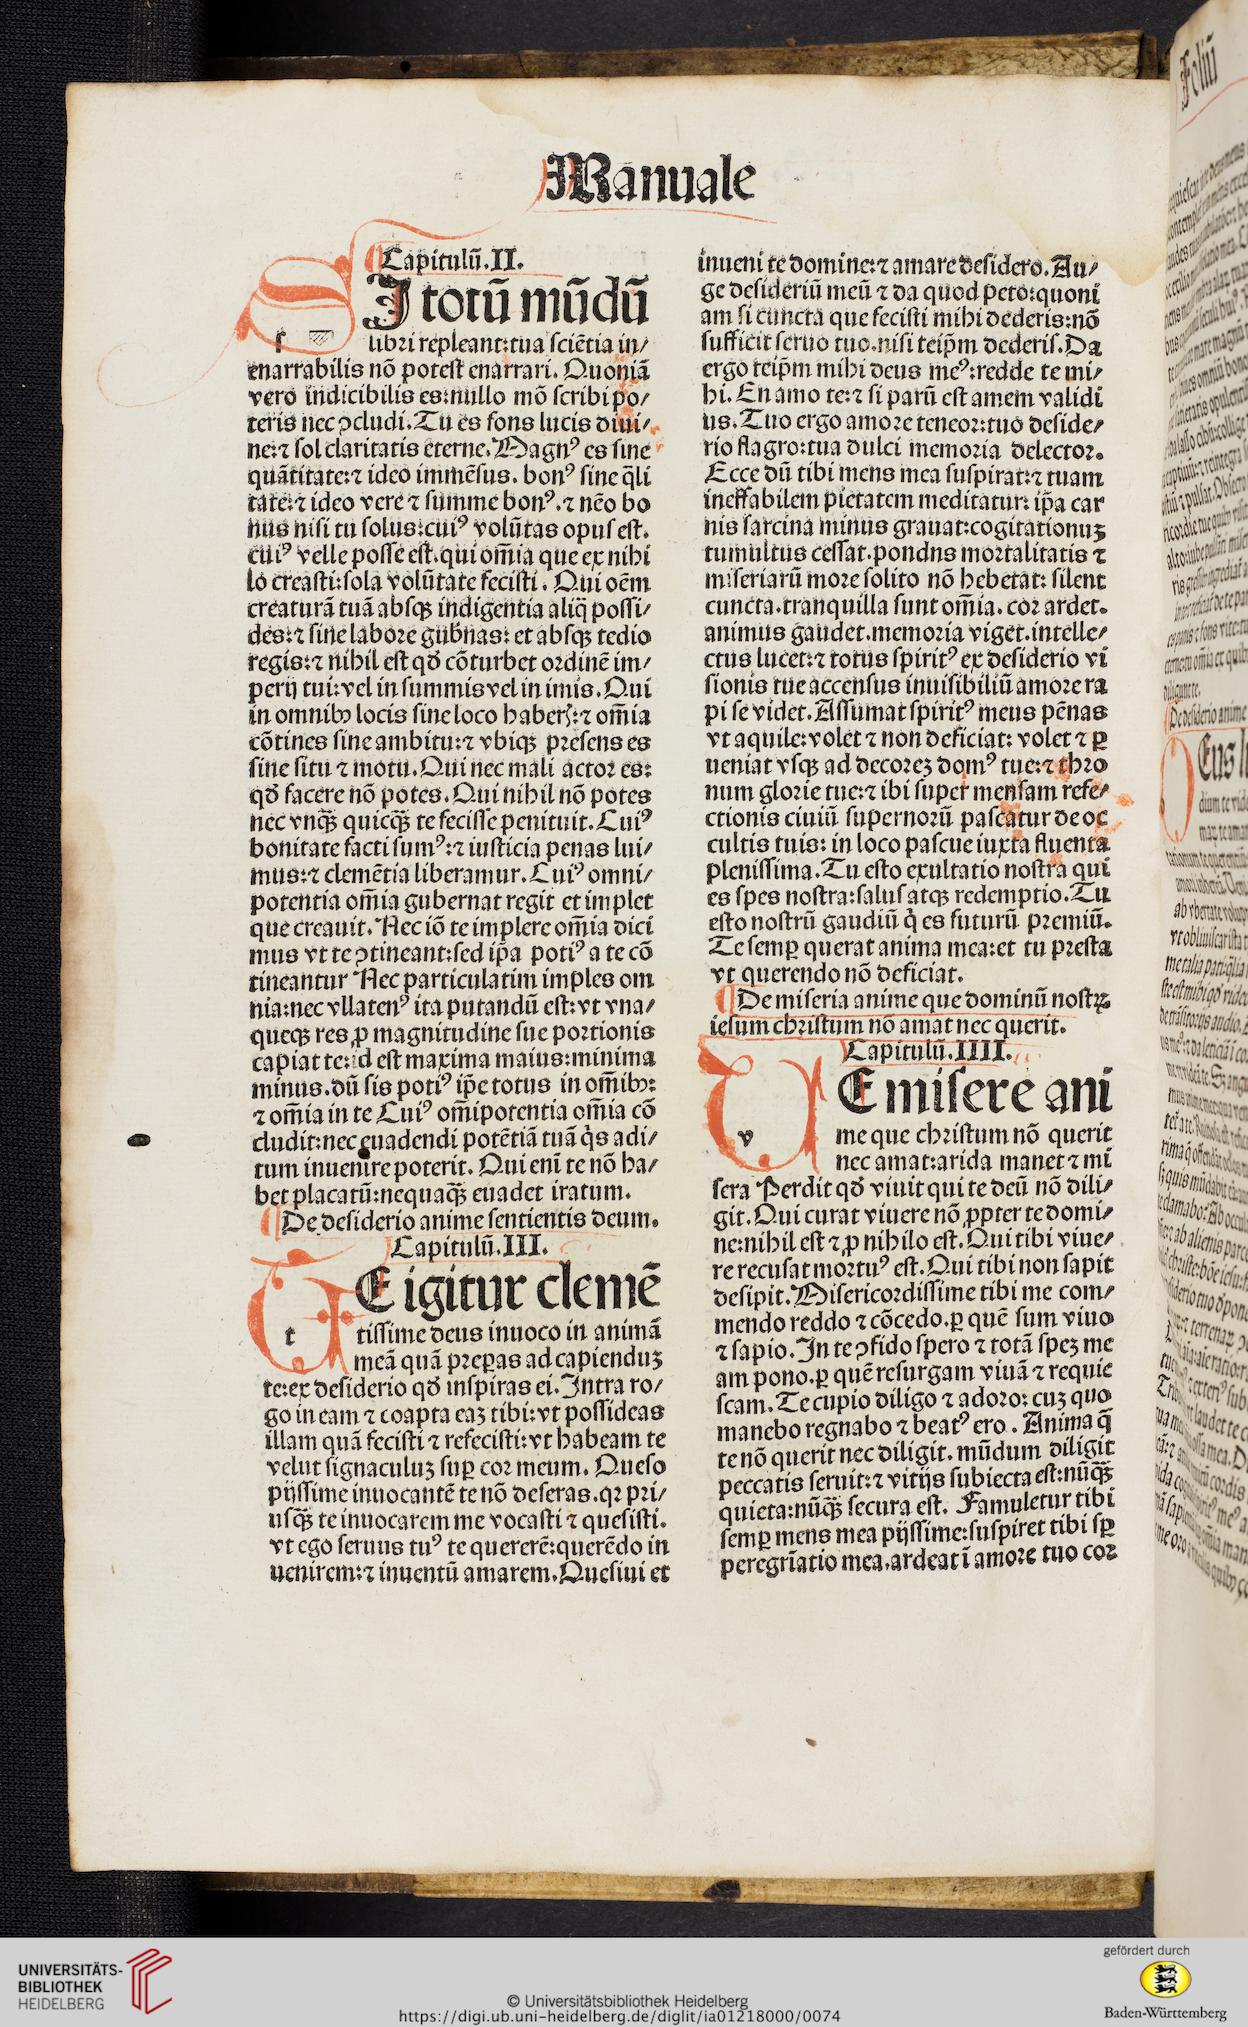 Manuale
Capitulū.II.
SI totū mūdū
libri repleant:tua sciētia in/
enarrabilis nō potest enarrari. Quoniā
vero indicibilis es:nullo mō scribi po/
teris nec ↄcludi. Tu es fons lucis diui/
ne:⁊ sol claritatis eterne. Magnꝰ es sine
quātitate:⁊ ideo immēsus. bonꝰ sine q̄li
tate:⁊ ideo vere ⁊ summe bonꝰ.⁊ nēo bo
nus nisi tu solus:cuiꝰ volūtas opus est.
cuiꝰ velle posse est.qui om̄ia que ex nihi
lo creasti:sola volūtate fecisti. Qui oēm
creaturā tuā absqꝫ indigentia aliq̄ possi/
des:⁊ sine labore gub̄nas: et absqꝫ tedio
regis:⁊ nihil est qď cōturbet ordinē im/
perij tui:vel in summis vel in imis. Qui
in omnibꝰ locis sine loco haberꝭ:⁊ om̄ia
cōtines sine ambitu:⁊ vbiqꝫ presens es
sine situ ⁊ motu. Qui nec mali actor es:
qď facere nō potes. Qui nihil nō potes
nec vnq̄ꝫ quicq̄ꝫ te fecisse penituit. Cuiꝰ
bonitate facti sumꝰ:⁊ iusticia penas lui/
mus:⁊ clemētia liberamur. Cuiꝰ omni/
potentia om̄ia gubernat regit et implet
que creauit. Nec iō te implere om̄ia dici
mus vt te ↄtineant:sed ip̄a potiꝰ a te cō
tineantur Nec particulatim imples om
nia:nec vllatenꝰ ita putandū est:vt vna/
queqꝫ res ꝓ magnitudine sue portionis
capiat te:id est maxima maius:minima
minus.dū sis potiꝰ ip̄e totus in om̄ibꝰ:
⁊ om̄ia in te Cuiꝰ om̄ipotentia om̄ia cō
cludit:nec euadendi potētiā tuā q̇s adi/
tum inuenire poterit. Qui eni te nō ha/
bet placatū:nequaq̄ꝫ euadet iratum.
De desiderio anime sentientis deum.
Capitulū.III.
TE igitur clemē
tissime deus inuoco in animā
meā quā prepas ad capienduꝫ
te:ex desiderio qď inspiras ei. Intra ro/
go in eam ⁊ coapta eaꝫ tibi:vt possideas
illam quā fecisti ⁊ refecisti:vt habeam te
velut signaculuꝫ suꝑ cor meum. Queso
pijssime inuocantē te nō deseras.qꝛ pri/
usq̄ꝫ te inuocarem me vocasti ⁊ quesisti.
vt ego seruus tuꝰ te quererē:querēdo in
uenirem:⁊ inuentū amarem. Quesiui et
inueni te domine:⁊ amare desidero. Au/
ge desideriū meū ⁊ da quod peto:quoni
am si cuncta que fecisti mihi dederis:nō
sufficit seruo tuo.nisi teip̄m dederis. Da
ergo teip̄m mihi deus meꝰ:redde te mi/
hi. En amo te:⁊ si parū est amem validi
us. Tuo ergo amore teneor:tuo deside/
rio flagro:tua dulci memoria delector.
Ecce dū tibi mens mea suspirat:⁊ tuam
ineffabilem pietatem meditatur: ip̄a car
nis sarcina minus grauat:cogitationuꝫ
tumultus cessat.pondns mortalitatis ⁊
miseriarū more solito nō hebetat: silent
cuncta.tranquilla sunt om̄ia. cor ardet.
animus gaudet.memoria viget.intelle/
ctus lucet:⁊ totus spiritꝰ ex desiderio vi
sionis tue accensus inuisibiliū amore ra
pi se videt. Assumat spiritꝰ meus pēnas
vt aquile:volet ⁊ non deficiat: volet ⁊ ꝑ
ueniat vsqꝫ ad decoreꝫ domꝰ tue:⁊ thro
num glorie tue:⁊ ibi super mensam refe/
ctionis ciuiū supernorū pascatur de oc
cultis tuis: in loco pascue iuxta fluenta
plenissima. Tu esto exultatio nostra qui
es spes nostra:salus atqꝫ redemptio. Tu
esto nostrū gaudiū q̇ es futurū premiū.
Te semꝑ querat anima mea:et tu presta
vt querendo nō deficiat.
De miseria anime que dominū nostrꝝ
iesum christum nō amat nec querit.
Capitulū.IIII.
VE misere ani
me que christum nō querit
nec amat:arida manet ⁊ mi
sera Perdit qď viuit qui te deū nō dili/
git. Qui curat viuere nō ꝓpter te domi/
ne:nihil est ⁊ ꝓ nihilo est. Qui tibi viue/
re recusat mortuꝰ est. Qui tibi non sapit
desipit. Misericordissime tibi me com/
mendo reddo ⁊ cōcedo.ꝑ quē sum viuo
⁊ sapio. In te ↄfido spero ⁊ totā speꝫ me
am pono.ꝑ quē resurgam viuā ⁊ requie
scam. Te cupio diligo ⁊ adoro: cuꝫ quo
manebo regnabo ⁊ beatꝰ ero. Anima q̄
te nō querit nec diligit. mūdum diligit
peccatis seruit:⁊ vitijs subiecta est:nūq̄ꝫ
quieta:nūq̄ꝫ secura est. Famuletur tibi
semꝑ mens mea pijssime:suspiret tibi sꝑ
peregrīatio mea.ardeat ī amore tuo cor
Foliū
UNIVERSITÄTS-
BIBLIOTHEK
HEIDELBERG
© Universitätsbibliothek Heidelberg
https://digi.ub.uni-heidelberg.de/diglit/ia01218000/0074
gefördert durch
Baden-Württemberg